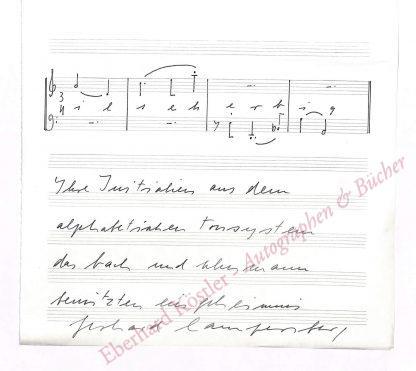 3
4
i l s e h e r b i g
Ihre Initialien aus dem
alphabetischen Tonsystem
das bach und schumann
benützten ein geheimnis
gerhard lampersberg
Eberhard Köstler - Autographen & Bücher